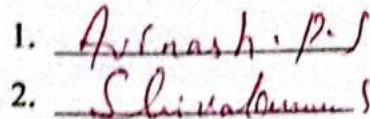 1. Avinash. P. S
2. Shivakumar S